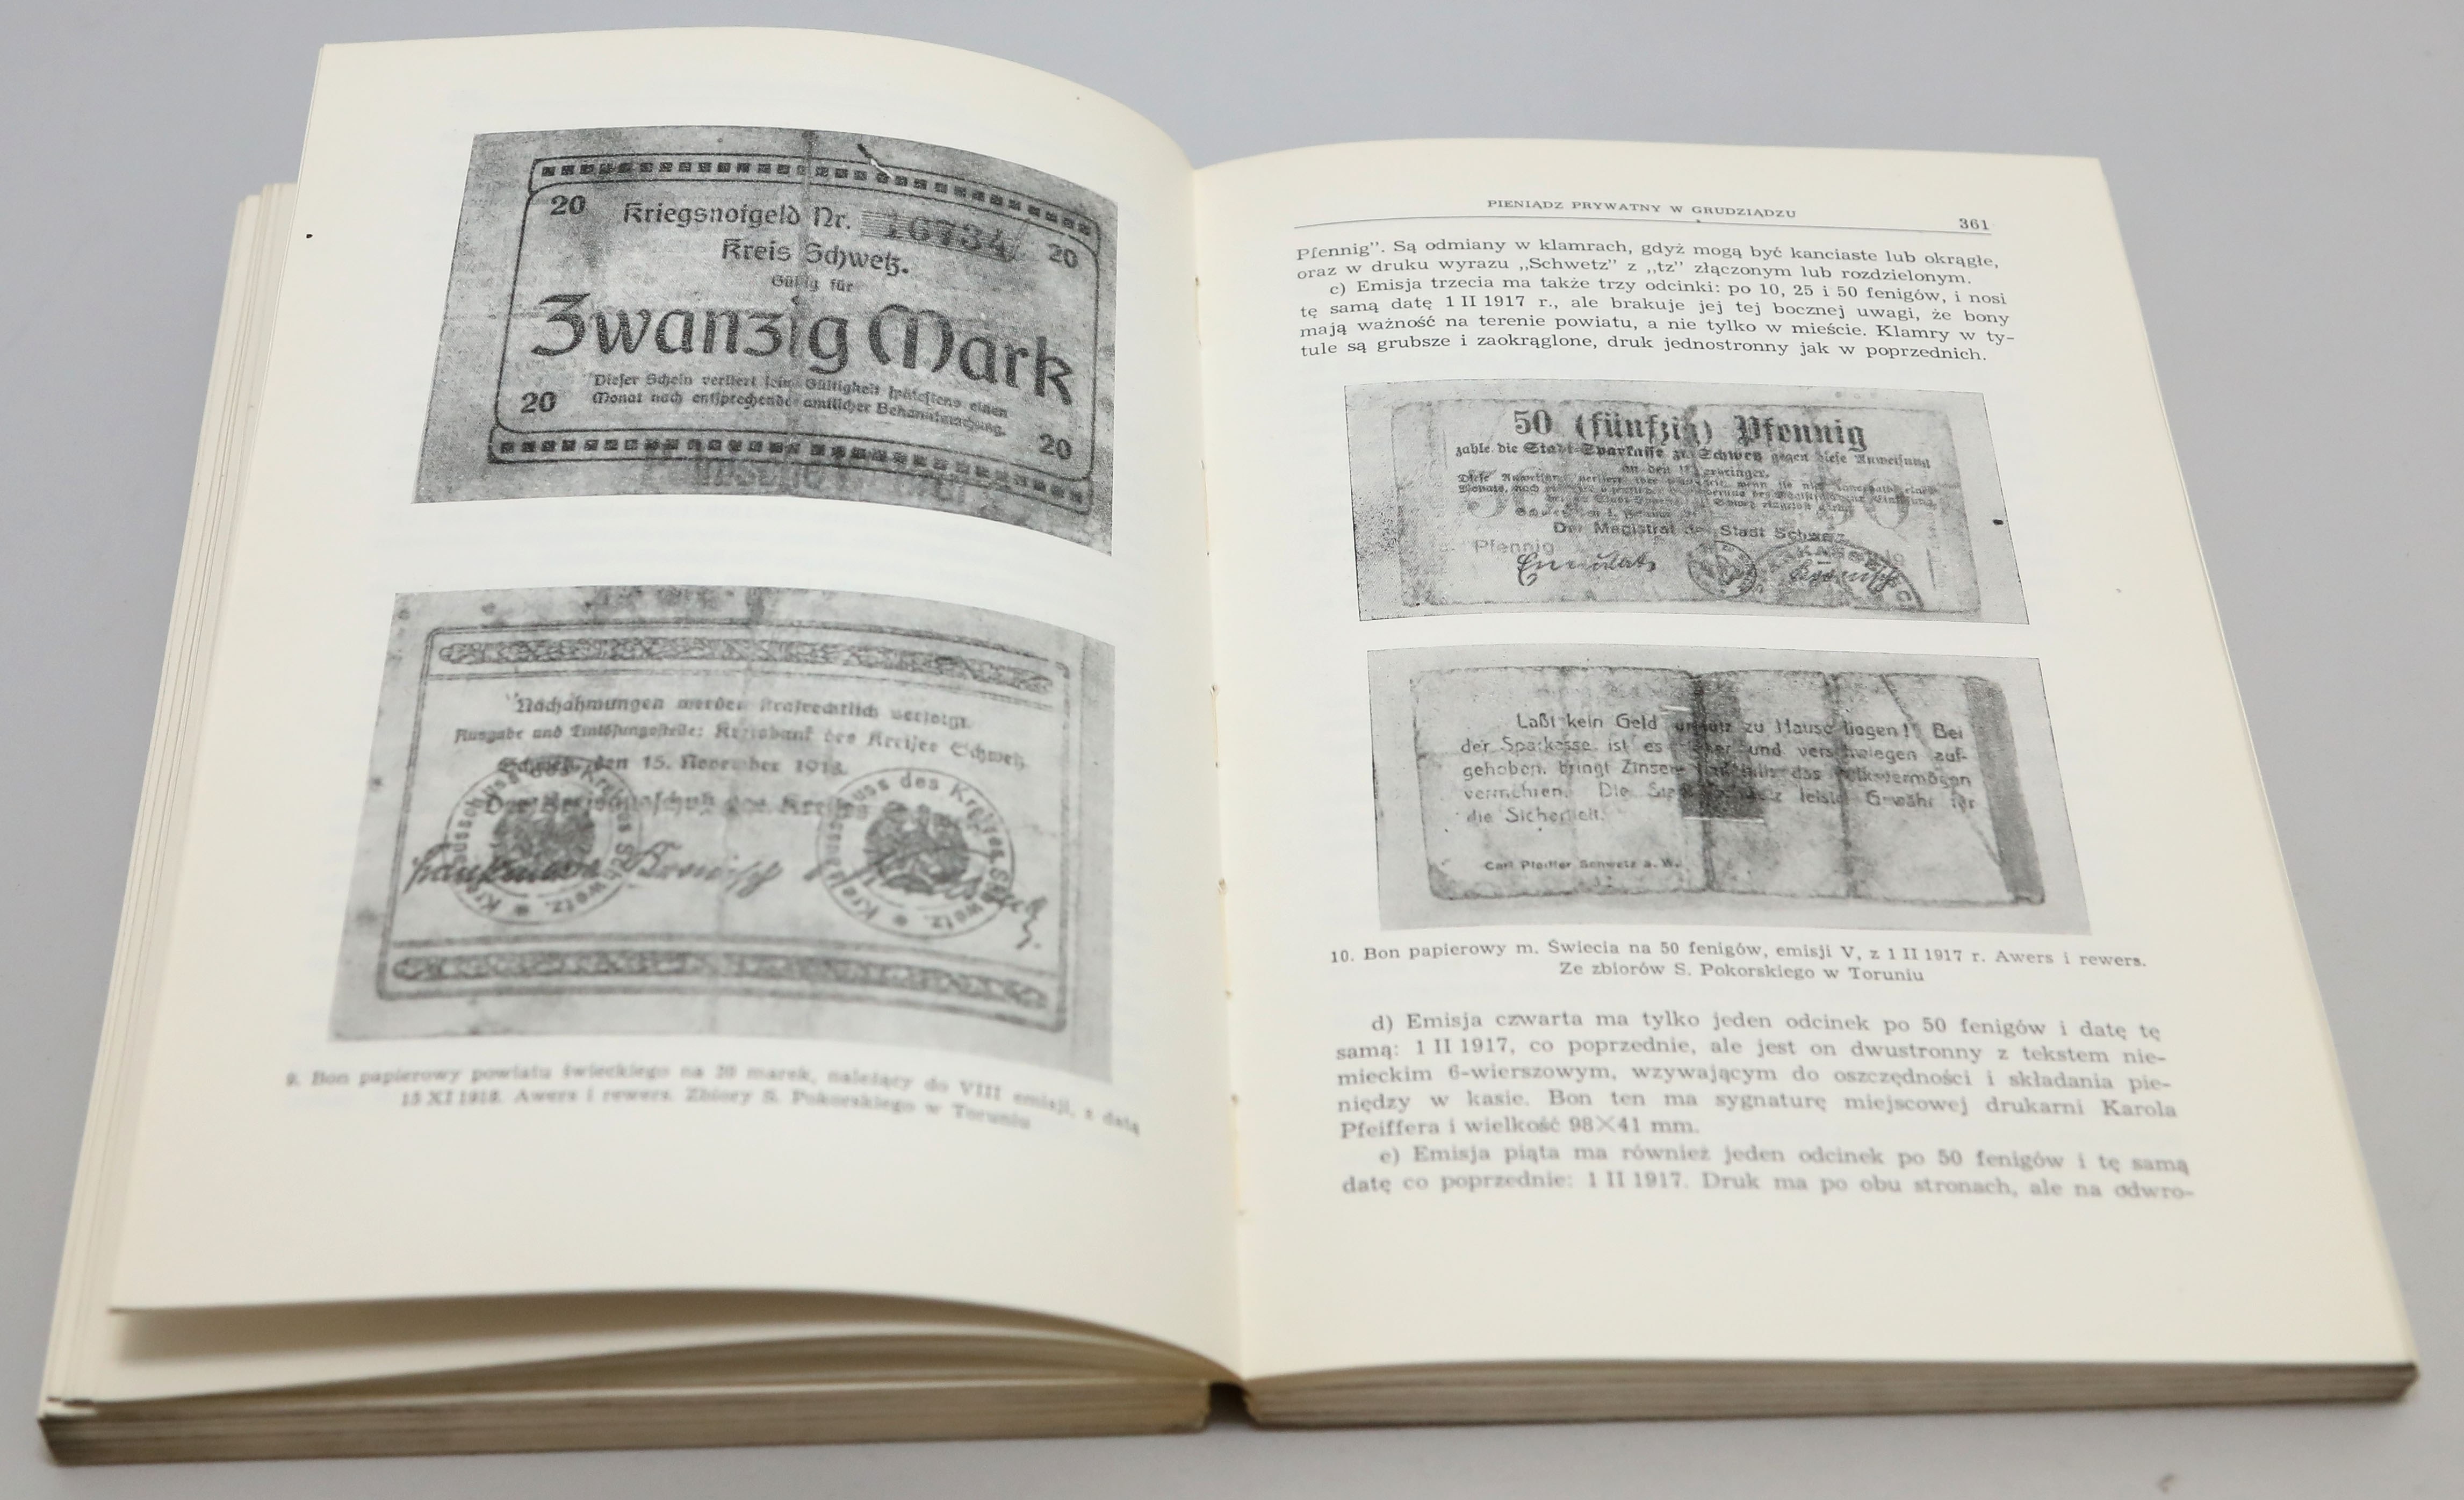 20
Kriegsnotgeld Nr. 16734
20
Kreis Schwetz.
Gültig für
Zwanzig Mark
Dieser Schein verliert seine Gültigkeit spätestens einen
Monat nach entsprechender amtlicher Bekanntmachung.
20
20
Nachahmungen werden strafrechtlich verfolgt.
Ausgabe und Einlösungsstelle: Kreisbank des Kreises Schwetz
Schwetz, den 15. November 1918.
Der Kreisausschuß des Kreises
9. Bon papierowy powiatu świeckiego na 20 marek, należący do VIII emisji, z datą
15 XI 1918. Awers i rewers. Zbiory S. Pokorskiego w Toruniu
PIENIĄDZ PRYWATNY W GRUDZIĄDZU
361
Pfennig”. Są odmiany w klamrach, gdyż mogą być kanciaste lub okrągłe,
oraz w druku wyrazu „Schwetz” z „tz” złączonym lub rozdzielonym.
c) Emisja trzecia ma także trzy odcinki: po 10, 25 i 50 fenigów, i nosi
tę samą datę 1 II 1917 r., ale brakuje jej tej bocznej uwagi, że bony
mają ważność na terenie powiatu, a nie tylko w mieście. Klamry w ty-
tule są grubsze i zaokrąglone, druk jednostronny jak w poprzednich.
50 (fünfzig) Pfennig
zahle die Stadt-Sparkasse zu Schwetz gegen diese Anweisung
an den
Der Magistrat der Stadt Schwetz
Pfennig
Laßt kein Geld unnütz zu Hause liegen! Bei
der Sparkasse ist es sicher und verschwiegen auf-
gehoben, bringt Zinsen das Volksvermögen
vermehren. Die leistet Gewähr für
die Sicherheit.
Carl Pfeiffer Schwetz a. W.
10. Bon papierowy m. Świecia na 50 fenigów, emisji V, z 1 II 1917 r. Awers i rewers.
Ze zbiorów S. Pokorskiego w Toruniu
d) Emisja czwarta ma tylko jeden odcinek po 50 fenigów i datę tę
samą: 1 II 1917, co poprzednie, ale jest on dwustronny z tekstem nie-
mieckim 6-wierszowym, wzywającym do oszczędności i składania pie-
niędzy w kasie. Bon ten ma sygnaturę miejscowej drukarni Karola
Pfeiffera i wielkość 98×41 mm.
e) Emisja piąta ma również jeden odcinek po 50 fenigów i tę samą
datę co poprzednie: 1 II 1917. Druk ma po obu stronach, ale na odwro-